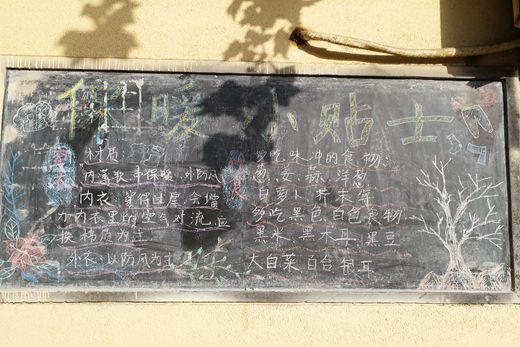 保暖小贴士
穿衣
材质
内薄软中保暖、外防风
内衣：穿得过厚，会增
加内衣里的空气对流，应
换棉质为主
外衣：以防风为主
饮食
多吃味冲的食物：
葱、姜、蒜、洋葱
白萝卜、芥末等
多吃黑色、白色食物：
黑米、黑木耳、黑豆
大白菜、白合、银耳